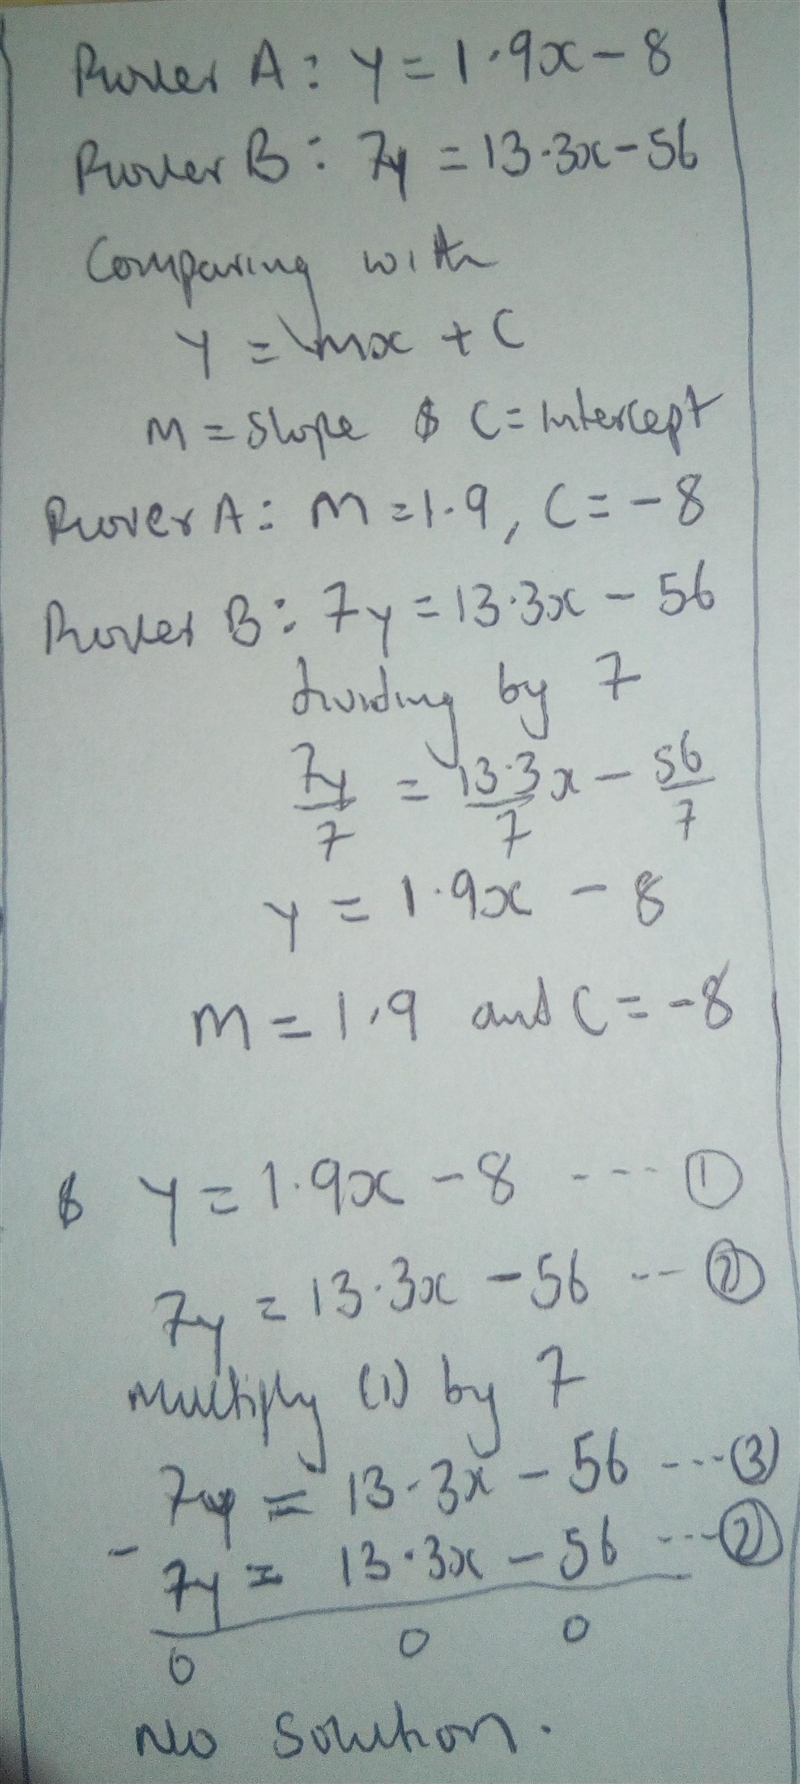 Rover A: y = 1.9x - 8
Rover B: 7y = 13.3x - 56
Comparing with
y = mx + c
M = slope & C = Intercept
Rover A: M = 1.9, C = -8
Rover B: 7y = 13.3x - 56
dividing by 7
7y/7 = 13.3/7 x - 56/7
y = 1.9x - 8
M = 1.9 and C = -8
& y = 1.9x - 8 ---- ①
7y = 13.3x - 56 --- ②
Multiply (1) by 7
7y = 13.3x - 56 ---- ③
- 7y = 13.3x - 56 ---- ②
0 0 0
No solution.